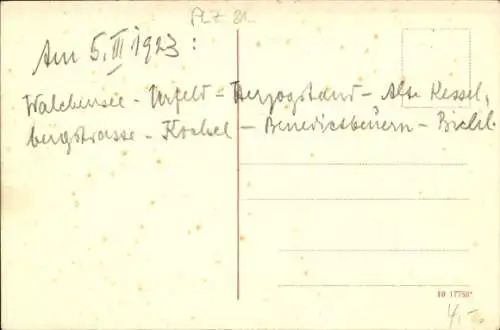 PLZ 81
Am 5. III 1923:
Walchensee - Urfeld - Herzogstand - Alte Kessel,
bergstrasse - Kochel - Benedictbeuern - Bichl.
10 17750*
4,-